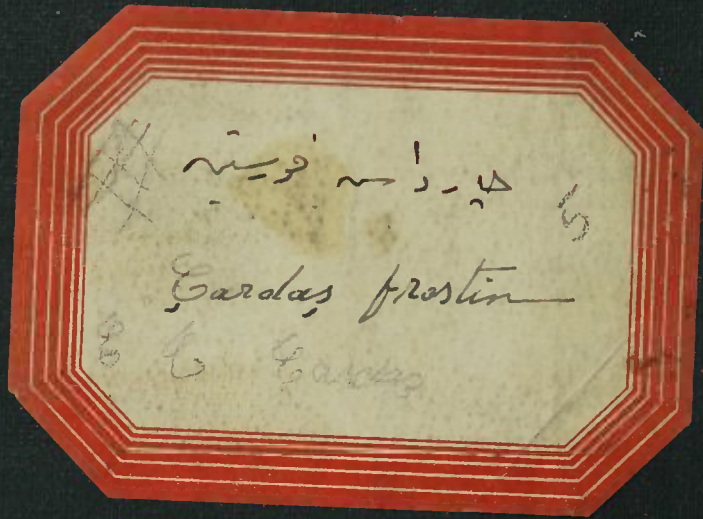 چارداس فورستین
Çardaş frostin
Ç Çardaş